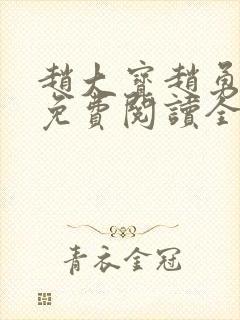 趙大寶趙勇
免費閱讀全
青衣全冠